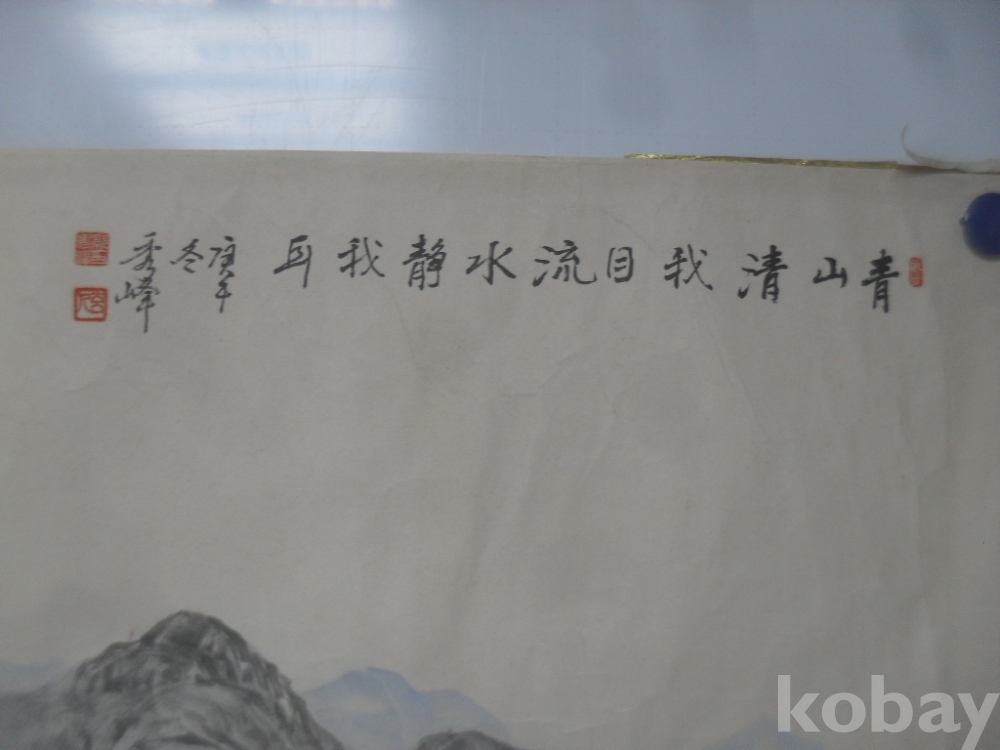 青山清我目流水靜我耳
庚午
冬
秀峰
kobay